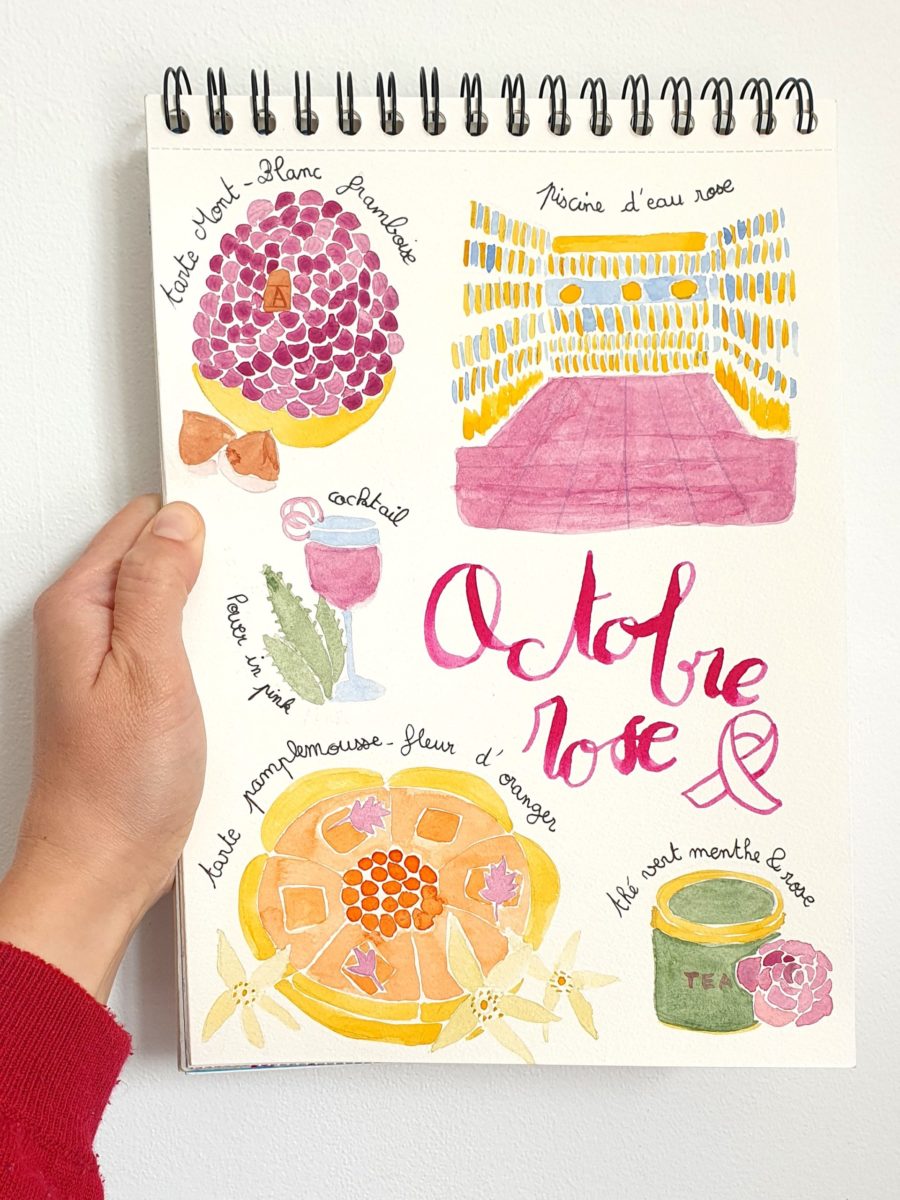 tarte Mont-Blanc framboise
A
piscine d'eau rose
cocktail
Power in pink
Octobre
rose
tarte pamplemousse-fleur d'oranger
thé vert menthe & rose
TEA